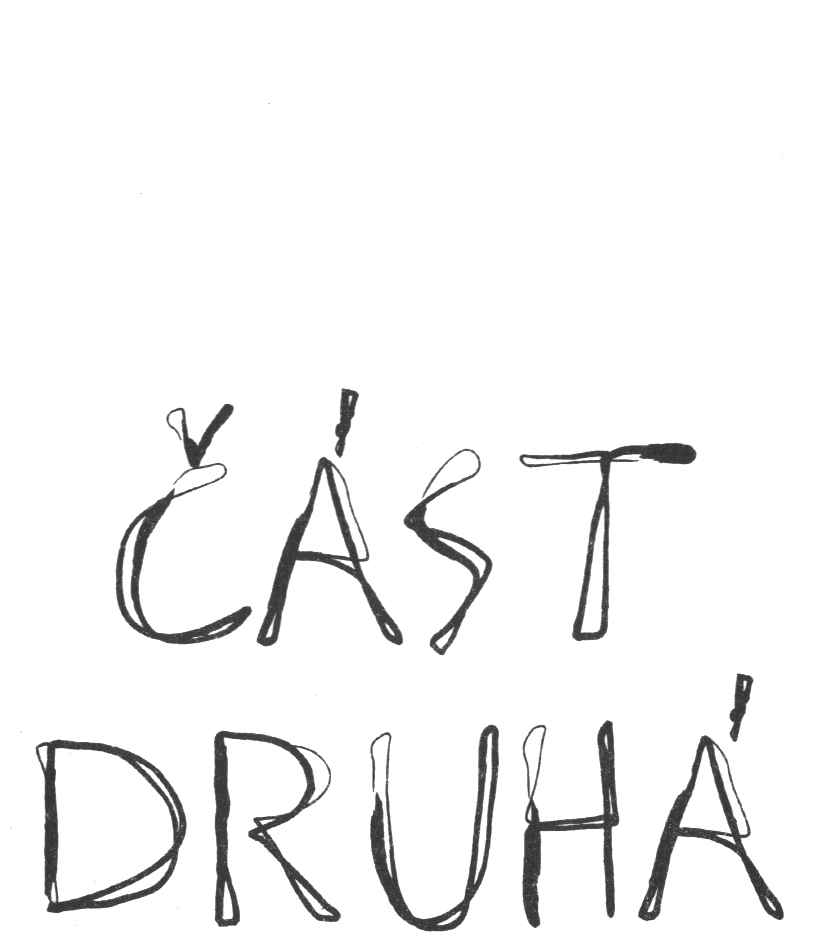 ČÁST
DRUHÁ